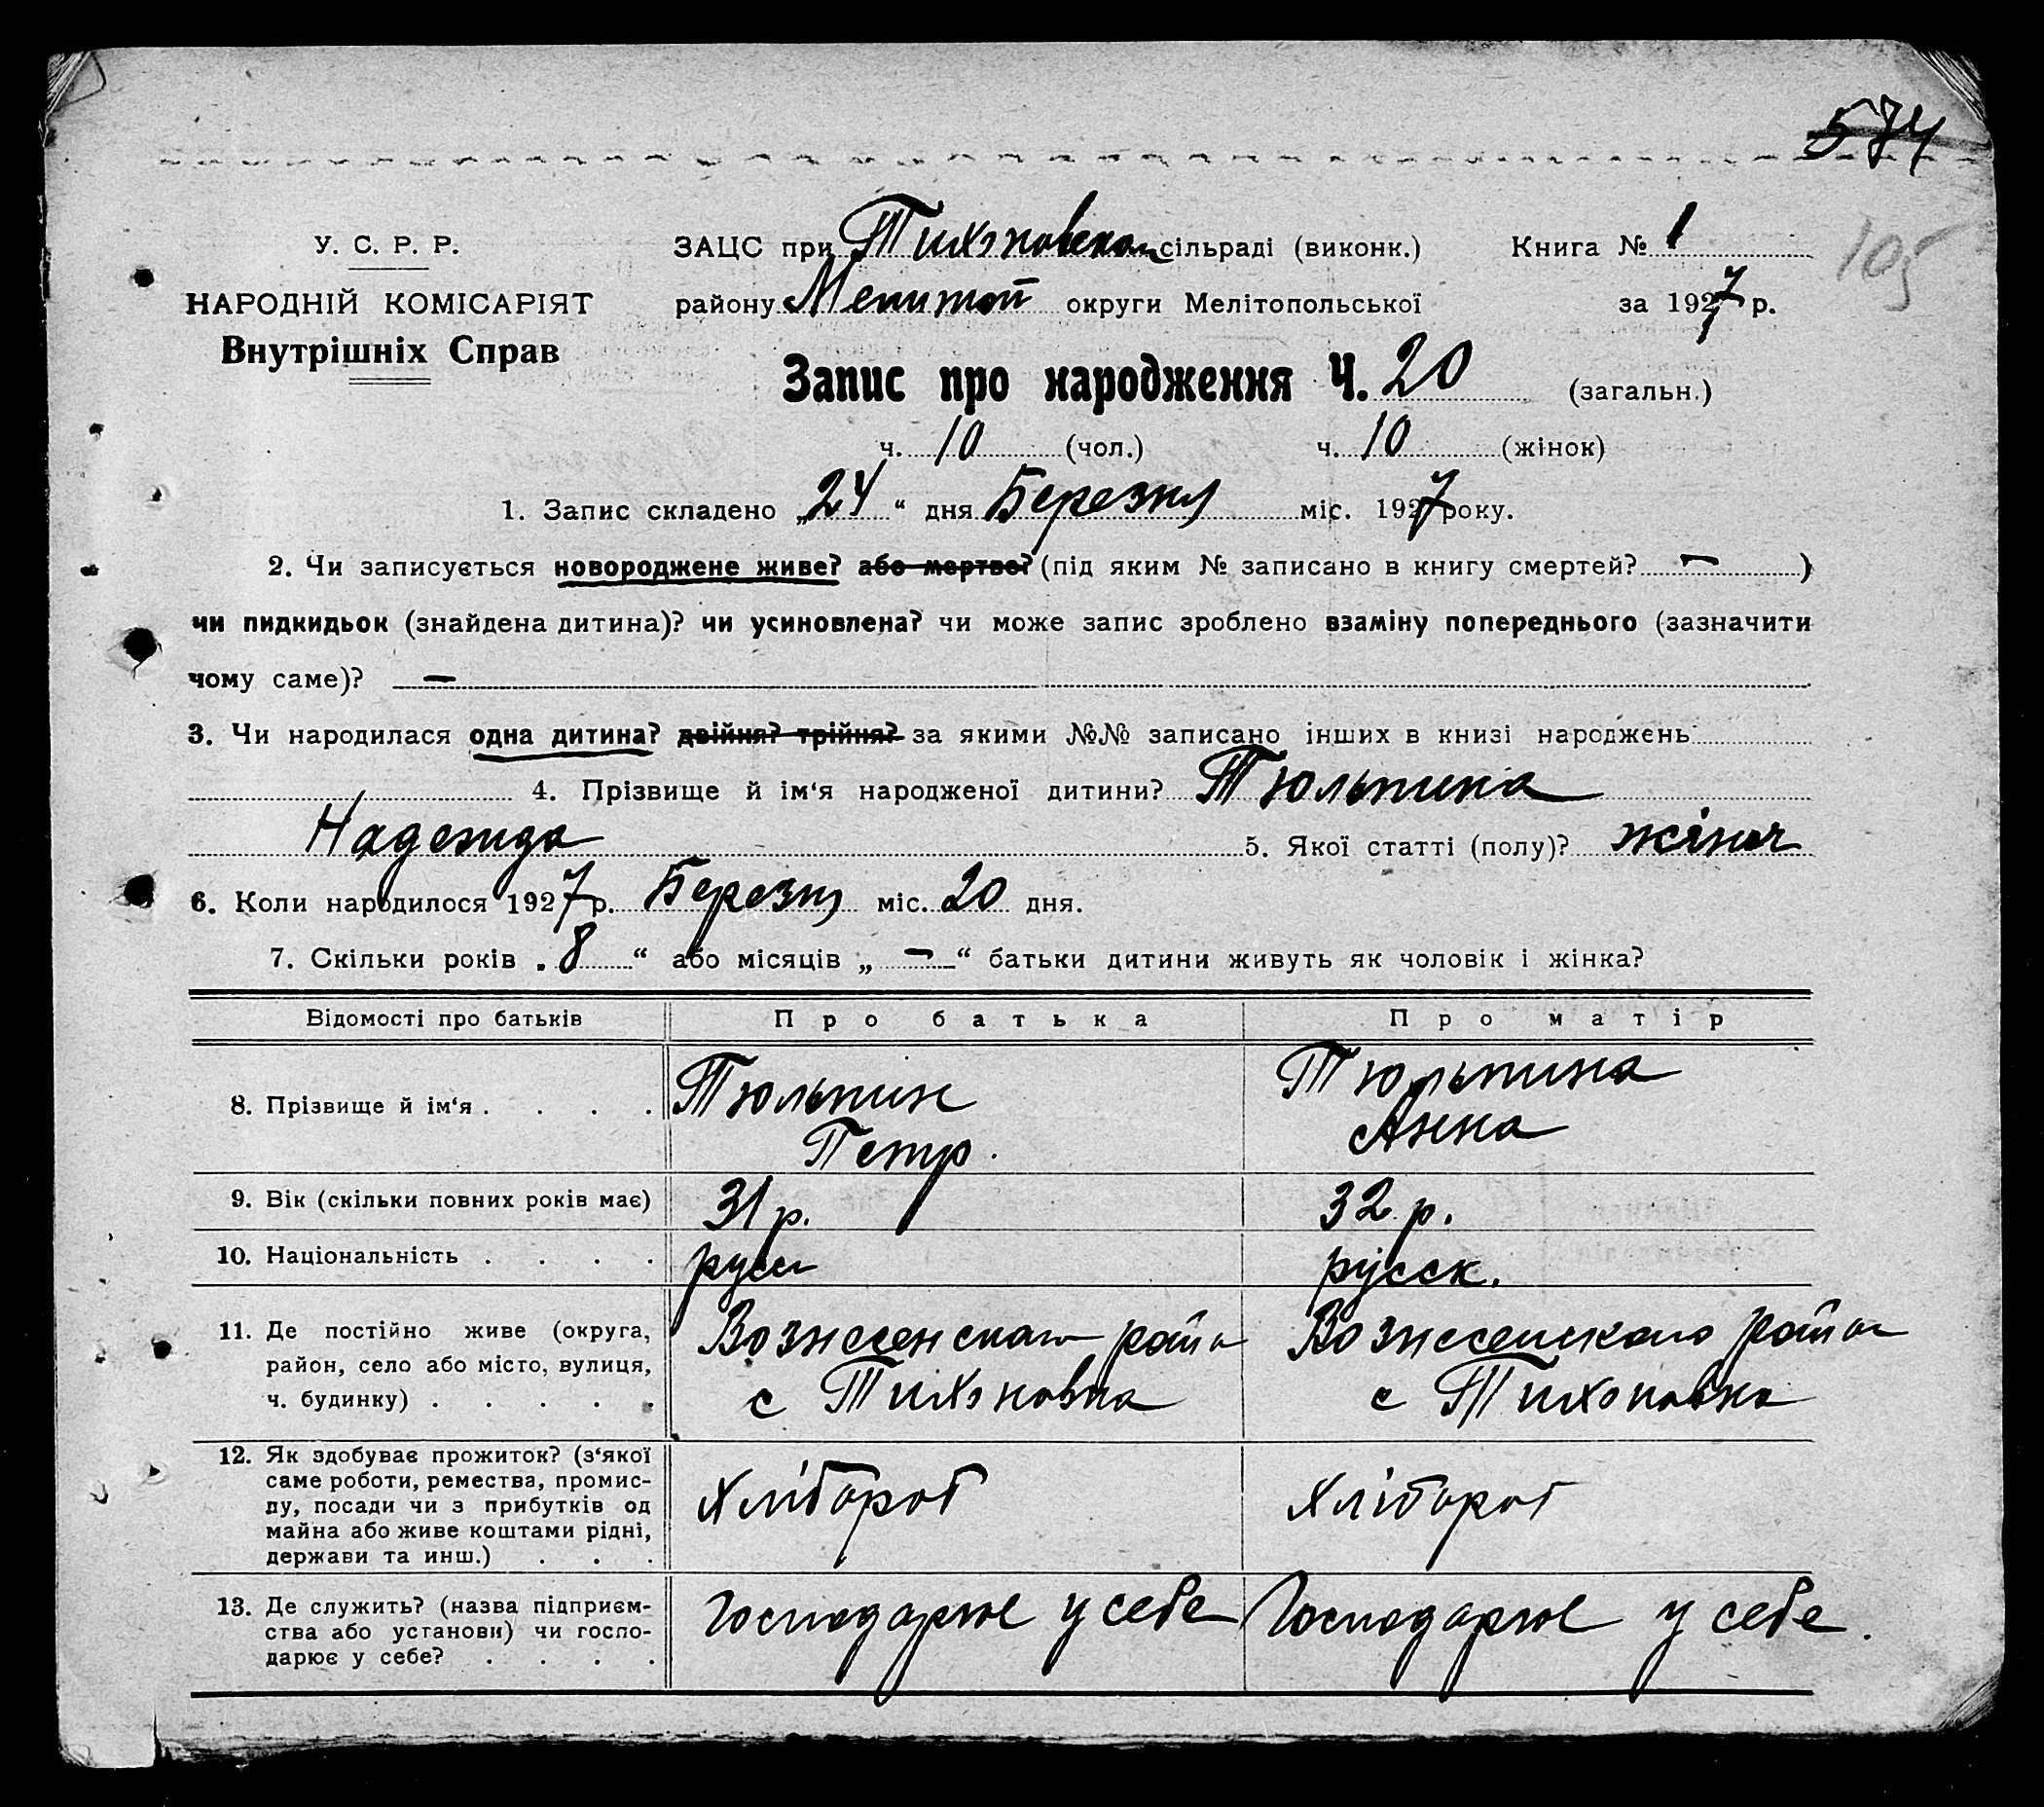 574
105
У. С. Р. Р.
НАРОДНІЙ КОМІСАРІЯТ
Внутрішніх Справ
ЗАЦС при Тихоновском сільраді (виконк.) Книга № 1
району Мелитоп округи Мелітопольської за 1927 р.
Запис про народження Ч. 20 (загальн.)
ч. 10 (чол.) ч. 10 (жінок)
1. Запис складено „24“ дня Березня міс. 1927 року.
2. Чи записується новороджене живе? або мертве? (під яким № записано в книгу смертей? — )
чи пидкидьок (знайдена дитина)? чи усиновлена? чи може запис зроблено взаміну попереднього (зазначити
чому саме)? —
3. Чи народилася одна дитина? двійня? трійня? за якими №№ записано інших в книзі народжень
4. Прізвище й ім‘я народженої дитини? Тюльпина
Надежда 5. Якої статті (полу)? жіноч
6. Коли народилося 1927 р. Березня міс. 20 дня.
7. Скільки років „8“ або місяців „—“ батьки дитини живуть як чоловік і жінка?
Відомості про батьків Про батька Про матір
8. Прізвище й ім‘я . . . . Тюльпин Тюльпина
Петр. Анна
9. Вік (скільки повних років має) 31 р. 32 р.
10. Національність . . . . русск русск.
11. Де постійно живе (округа, Вознесенского райо Вознесенского района
район, село або місто, вулиця, с Тихоновка с Тихоновка
ч. будинку) . . . . .
12. Як здобуває прожиток? (з‘якої
саме роботи, ремества, промис- Хлібороб Хлібороб
лу, посади чи з прибутків од
майна або живе коштами рідні,
держави та инш.) . . .
13. Де служить? (назва підприєм- Господарює у себе Господарює у себе.
ства або установи) чи госпо-
дарює у себе? . . . .